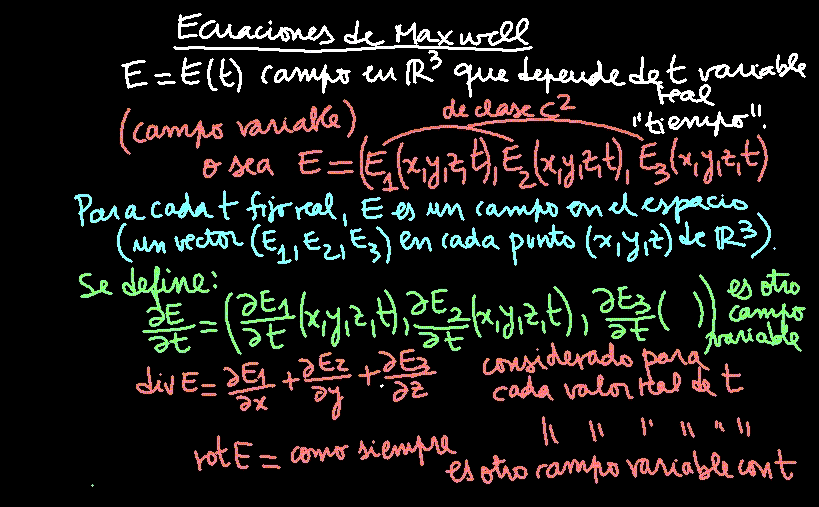 Ecuaciones de Maxwell
E = E(t) campo en ℝ³ que depende de t variable
real
"tiempo".
(campo variable)
de clase C²
o sea E = (E₁(x,y,z,t), E₂(x,y,z,t), E₃(x,y,z,t)
Para cada t fijo real, E es un campo en el espacio
(un vector (E₁, E₂, E₃) en cada punto (x,y,z) de ℝ³).
Se define:
∂E/∂t = (∂E₁/∂t (x,y,z,t), ∂E₂/∂t (x,y,z,t), ∂E₃/∂t ( )) es otro campo variable
div E = ∂E₁/∂x + ∂E₂/∂y + ∂E₃/∂z considerado para
cada valor real de t
rot E = como siempre " " " " " "
es otro campo variable con t